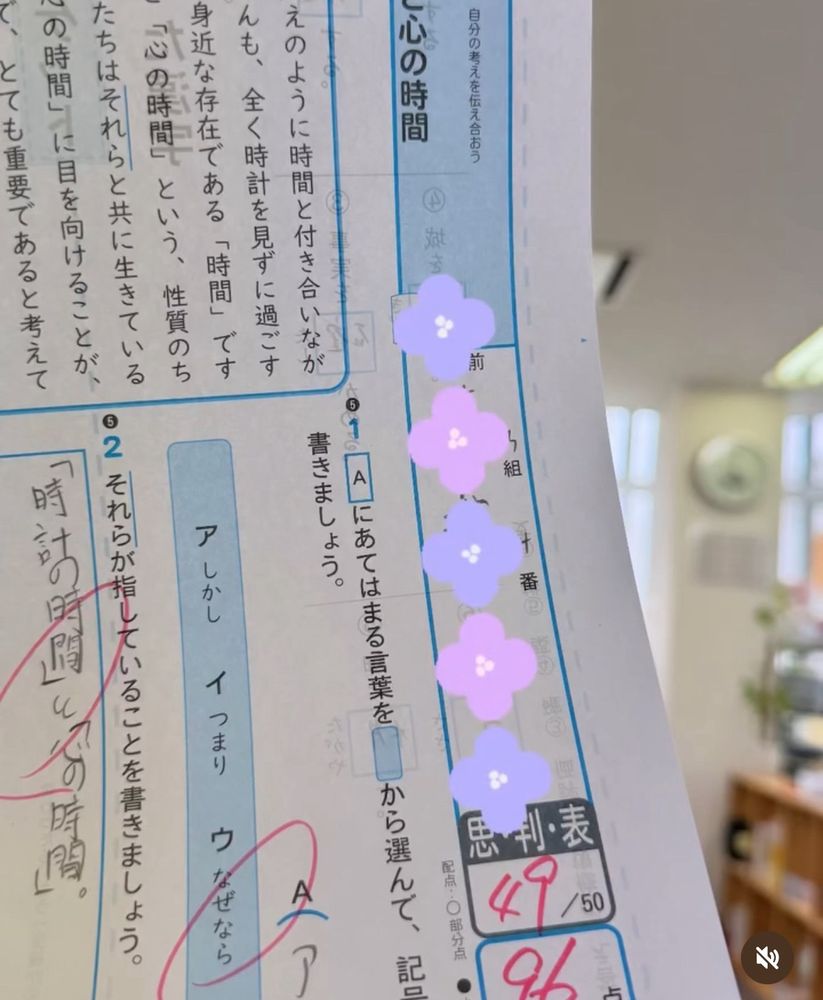 自分の考えを伝え合おう
と心の時間
前
組
番
思・判・表
49/50
96
点
配点:○部分点
えのように時間と付き合いなが
んも、全く時計を見ずに過ごす
身近な存在である「時間」です
「心の時間」という、性質のち
たちはそれらと共に生きている
心の時間」に目を向けることが、
で、とても重要であると考えて
❺
1 Aにあてはまる言葉を から選んで、記号
書きましょう。
ア しかし イ つまり ウ なぜなら
A ア
❺
2 それらが指していることを書きましょう。
「時計の時間」と「心の時間」。